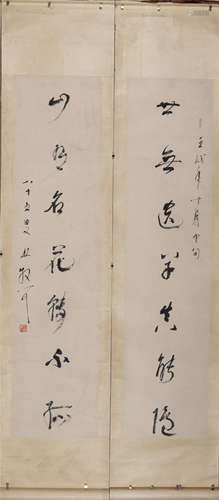 世無遺草真能隱
山有名花轉不孤
壬戌年十月中旬
八十五叟林散之